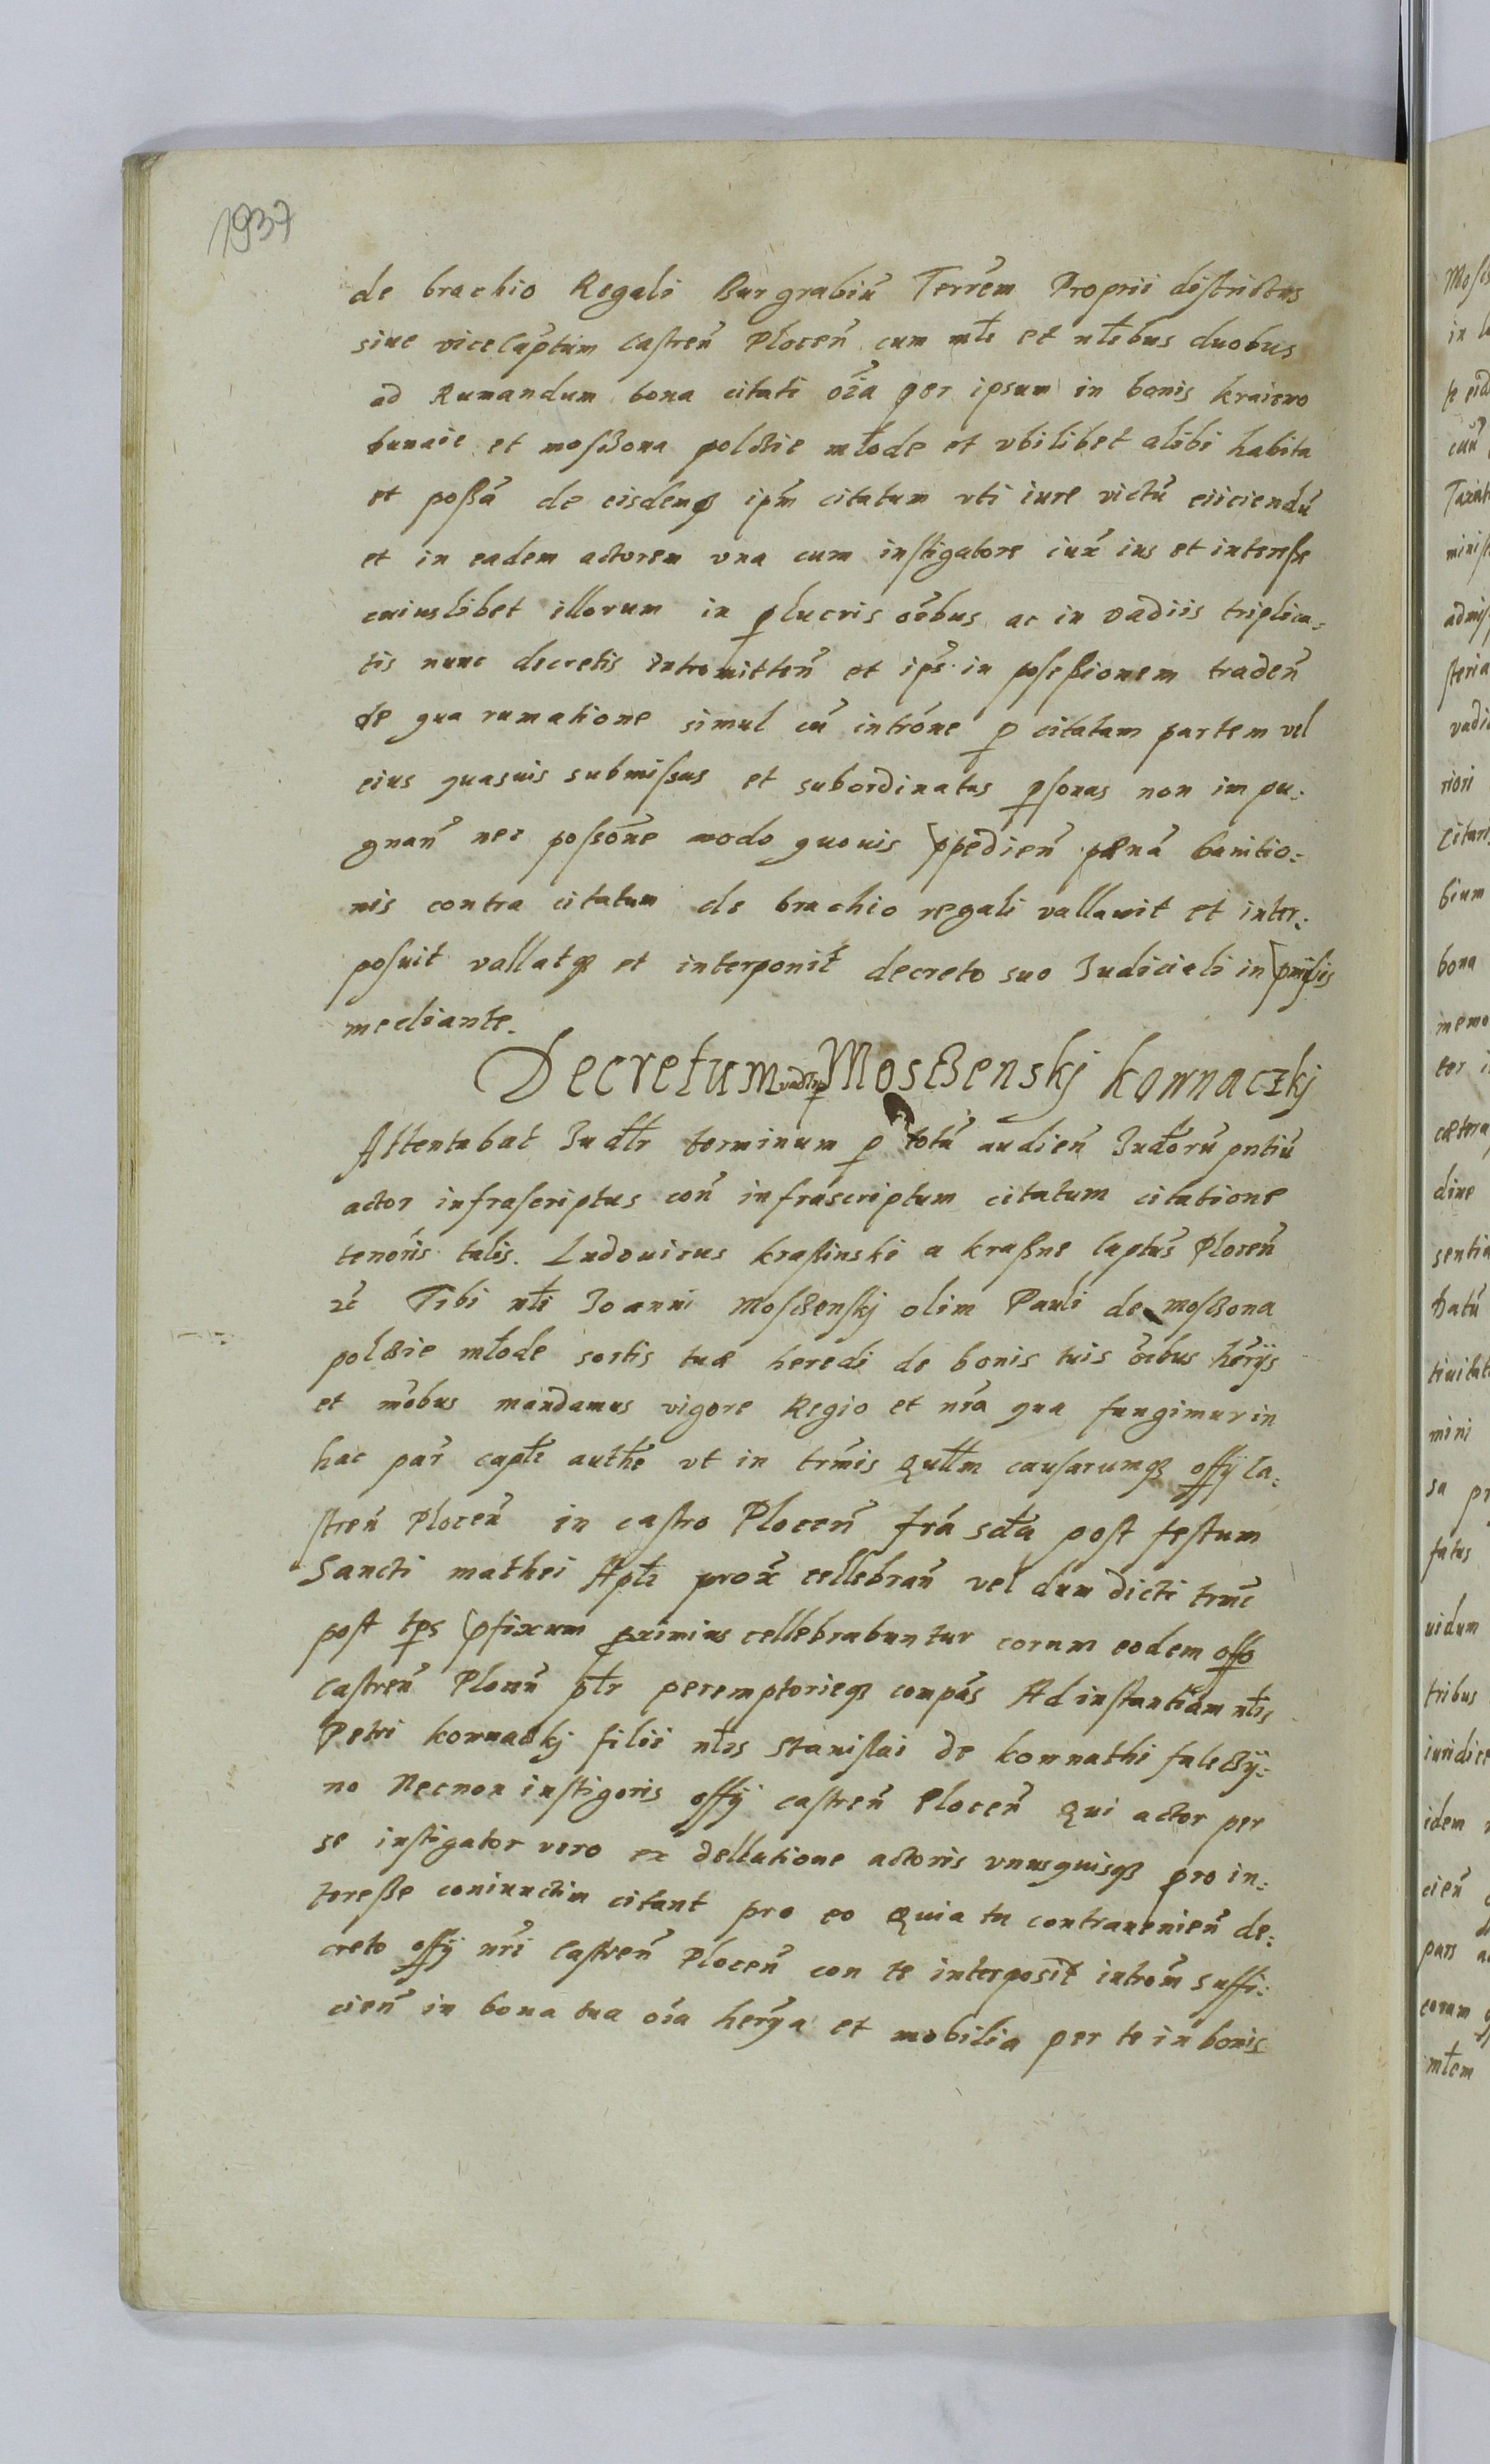 1937
de brachio Regali Burgrabiū Terrēm Proprii districtus
siue viceCaptum Castreñ Ploceñ cum młi et nłibus duobus
ad Rumandum bona citati oĩa per ipsum in bonis kraiewo
bunaie et mosſzona polozie młode et vbilibet alibi habita
et poßã de eisdemqꝫ ipm̃ citatum vti iure victũ eiiciendũ
et in eadem actorem vna cum instigatore iux̃ ius et interesse
cuiuslibet illorum in plucris oĩbus ac in vadiis triplica:
tis nunc decretis intromitteñ et ip̃s in poseßionem tradeñ
de qua rumatione simul cũ introne ꝑ citatam partem vel
eius quasuis submissas et subordinatas ꝑsonas non impu:
gnañ nec possõne modo quouis p̃pedieñ pœnã banitio:
nis contra citatum de brachio regali vallauit et inter:
posuit vallatqꝫ et interponit decreto suo Judiciali in p̃missis
mediante.
Decretum Mosszenskj Kownaczkj
Attentabat Judłr terminum ꝑ totũ audieñ Judorũ pntiũ
actor infrascriptus coñ infrascriptum citatum citatione
tenoris talis. Ludouicus kraßinski a kraßne Captũs Ploceñ
ꝛc Tibi nłi Joanni Mosszenskj olim Pauli de mosszona
polozie młode sortis tuæ heredi de bonis tuis oĩbus herĩjs
et mõbus mandamus vigore Regio et nrã qua fungimur in
hac par̃ capłi authẽ vt in trm̃is Qułłm causarumqꝫ offÿ Ca:
streñ Ploceñ in castro Ploceñ frã scda post festum
Sancti mathei Apłi prox̃ cellebrañ vel dum dicti trmĩ
post tp̃s p̃fixum ꝓximius cellebrabuntur coram eodem offo
Castreñ Plonñ płr peremptorieqꝫ compãs Ad instantiam nłis
Petri kownackj filii nłis Stanislai de kownathi faleczÿ:
no Necnon instigoris offÿ castreñ Ploceñ Qui actor per
se instigator vero ex dellatione actoris vnusquisqꝫ pro in:
tereße coniunctim citant pro eo Quia tu contraueñieñ de:
creto offÿ nrĩ Castreñ Ploceñ con te interposit̃ introm̃ suffi:
cieñ in bona tua oĩa herĩa et mobilia per te in bonis